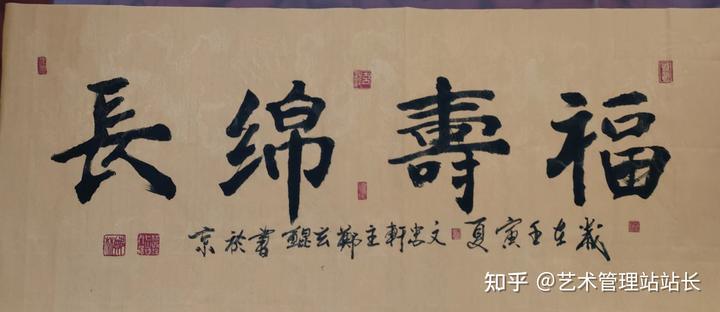 福壽绵長
歲在壬寅夏文忠軒主鄭玄醌書於京
知乎 @艺术管理站站长